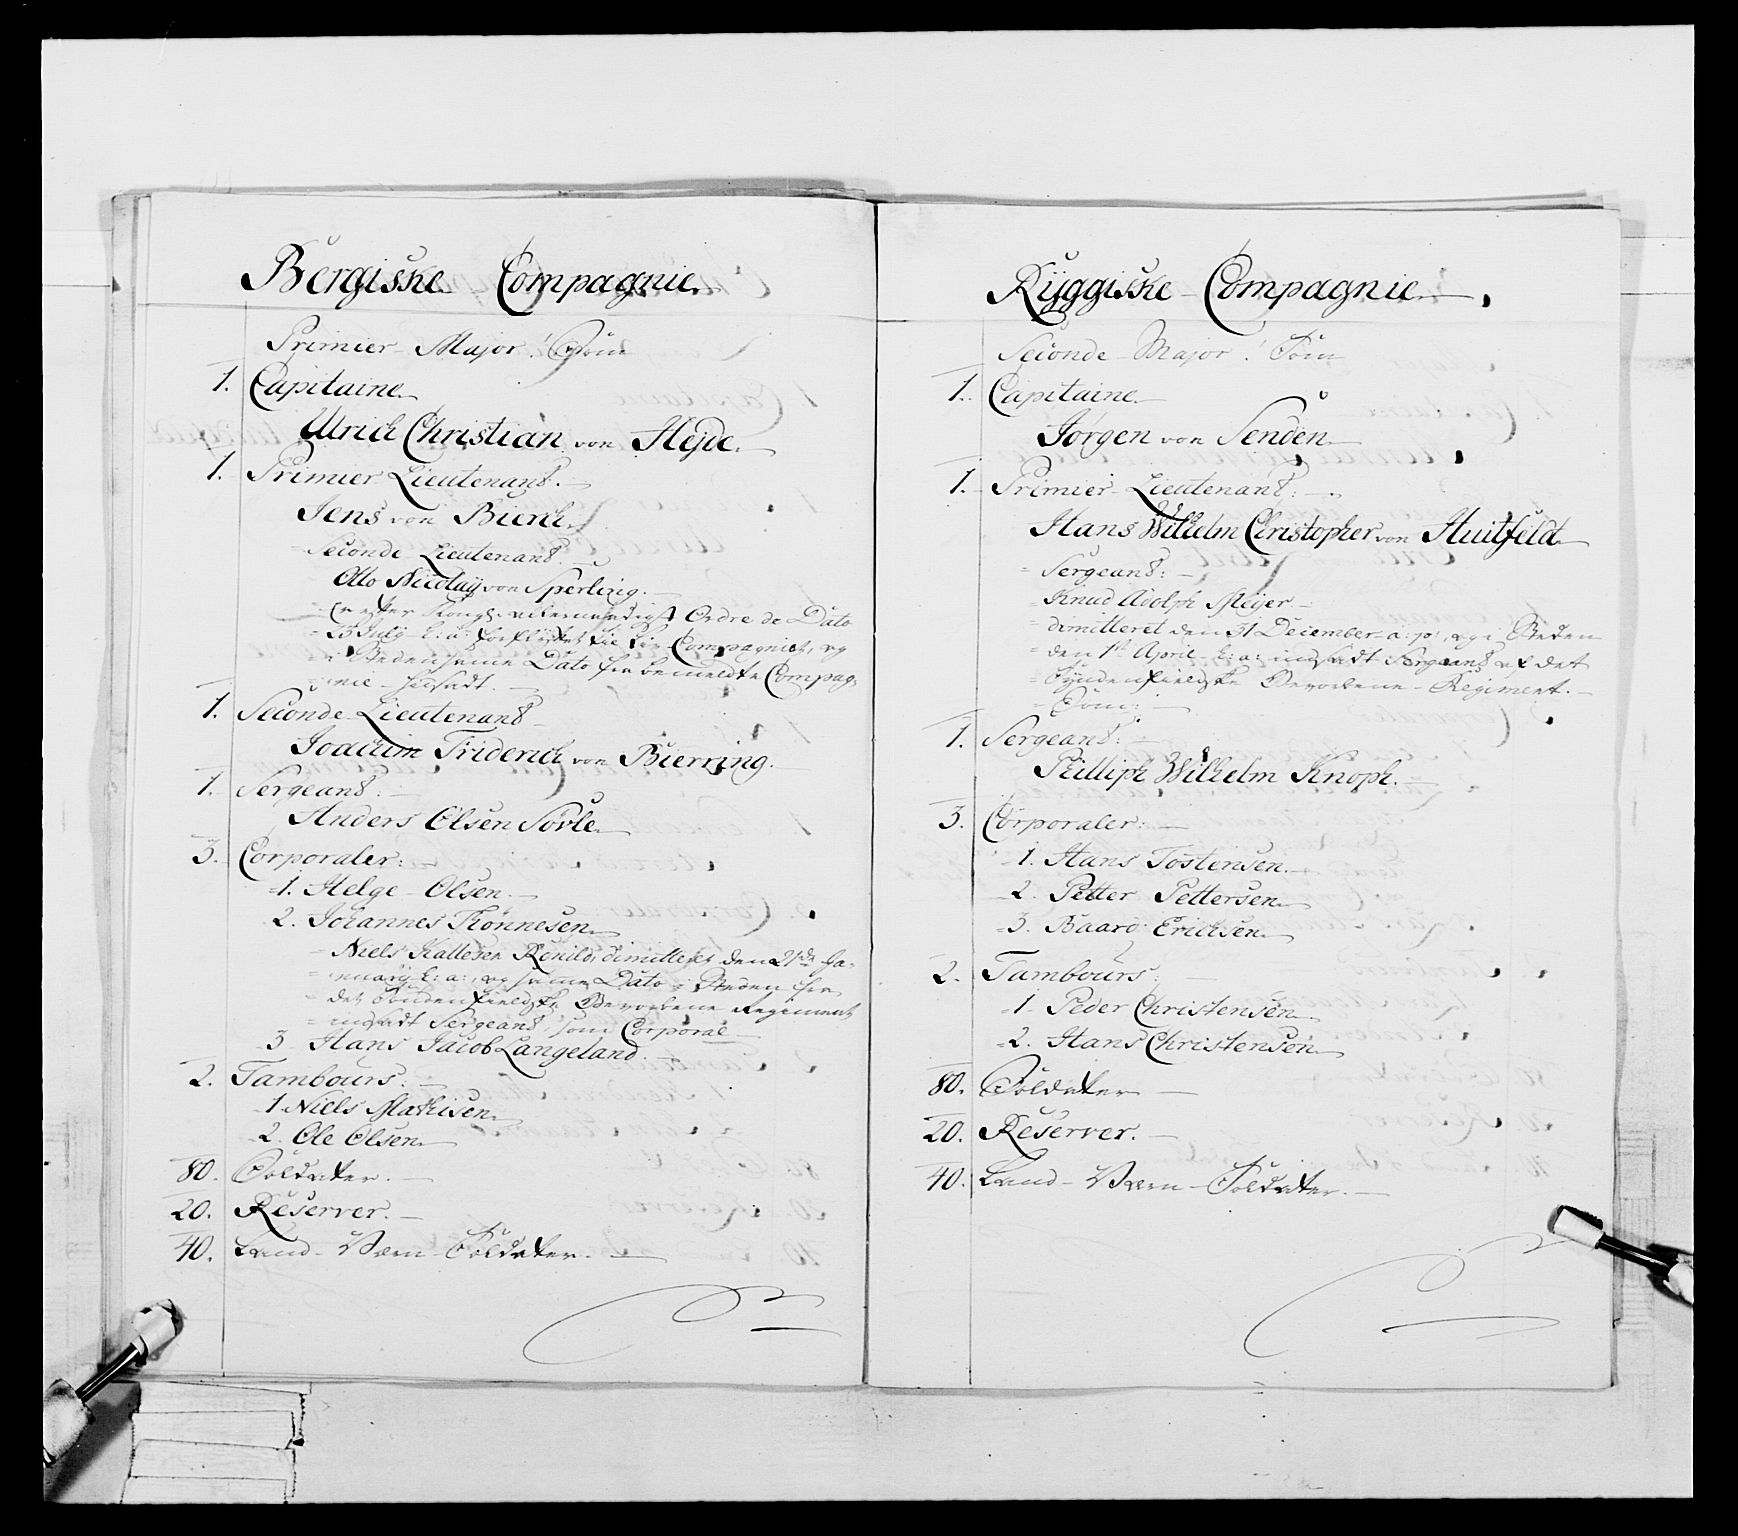 Bergiske Compagnie.
Primier-Major! Som
1. Capitaine.
Ulrich Christian von Hejde.
1. Primier Lieutenant.
Jens von Bierck.
Seconde Lieutenant.
Otto Nicolaÿ von Sperling.
er efter Kongl. allernaadigst Ordre de Dato
25 Julÿ h: a: forflÿttet til Compagniet, og
i Steden samme Dato fra bemeldte Compag-
nie hidsadt.
1. Seconde Lieutenant
Joachim Friderich von Bierring.
1. Sergeant:
Anders Olsen Sövle.
3. Corporaler:
1. Helge Olsen.
2. Johannes Thönnesen.
Niels Kallesen Rönild, dimitteret den 21de Ja-
nuarÿ h: a:, og samme Dato i Steden fra
det Søndenfieldske Gevorbene Regiment
indsadt Sergeant, som Corporal
3. Hans Jacob Langeland.
2. Tambours:
1. Niels Mathisen.
2. Ole Olsen.
80. Soldater.
20. Reserver.
40. Land-Værn-Soldater.
Rÿggiske Compagnie.
Seconde-Major! Som
1. Capitaine.
Jörgen von Senden.
1. Primier-Lieutenant:
Hans Wilhelm Christopher von Huitfeld.
Sergeant:
Knud Adolph Meÿer
dimitteret den 31 December a: p:, og i Steden
den 1te April h: a: indsadt Sergeant af det
Søndenfieldske Gevorbene-Regiment.
Som:
1. Sergeant:
Philliph Wilhelm Knoph.
3. Corporaler:
1. Hans Tostensen.
2. Petter Pettersen.
3. Baard Erichsen.
2. Tambours
1. Peder Christensen.
2. Hans Christensen.
80. Soldater
20. Reserver.
40. Land-Værn-Soldater.